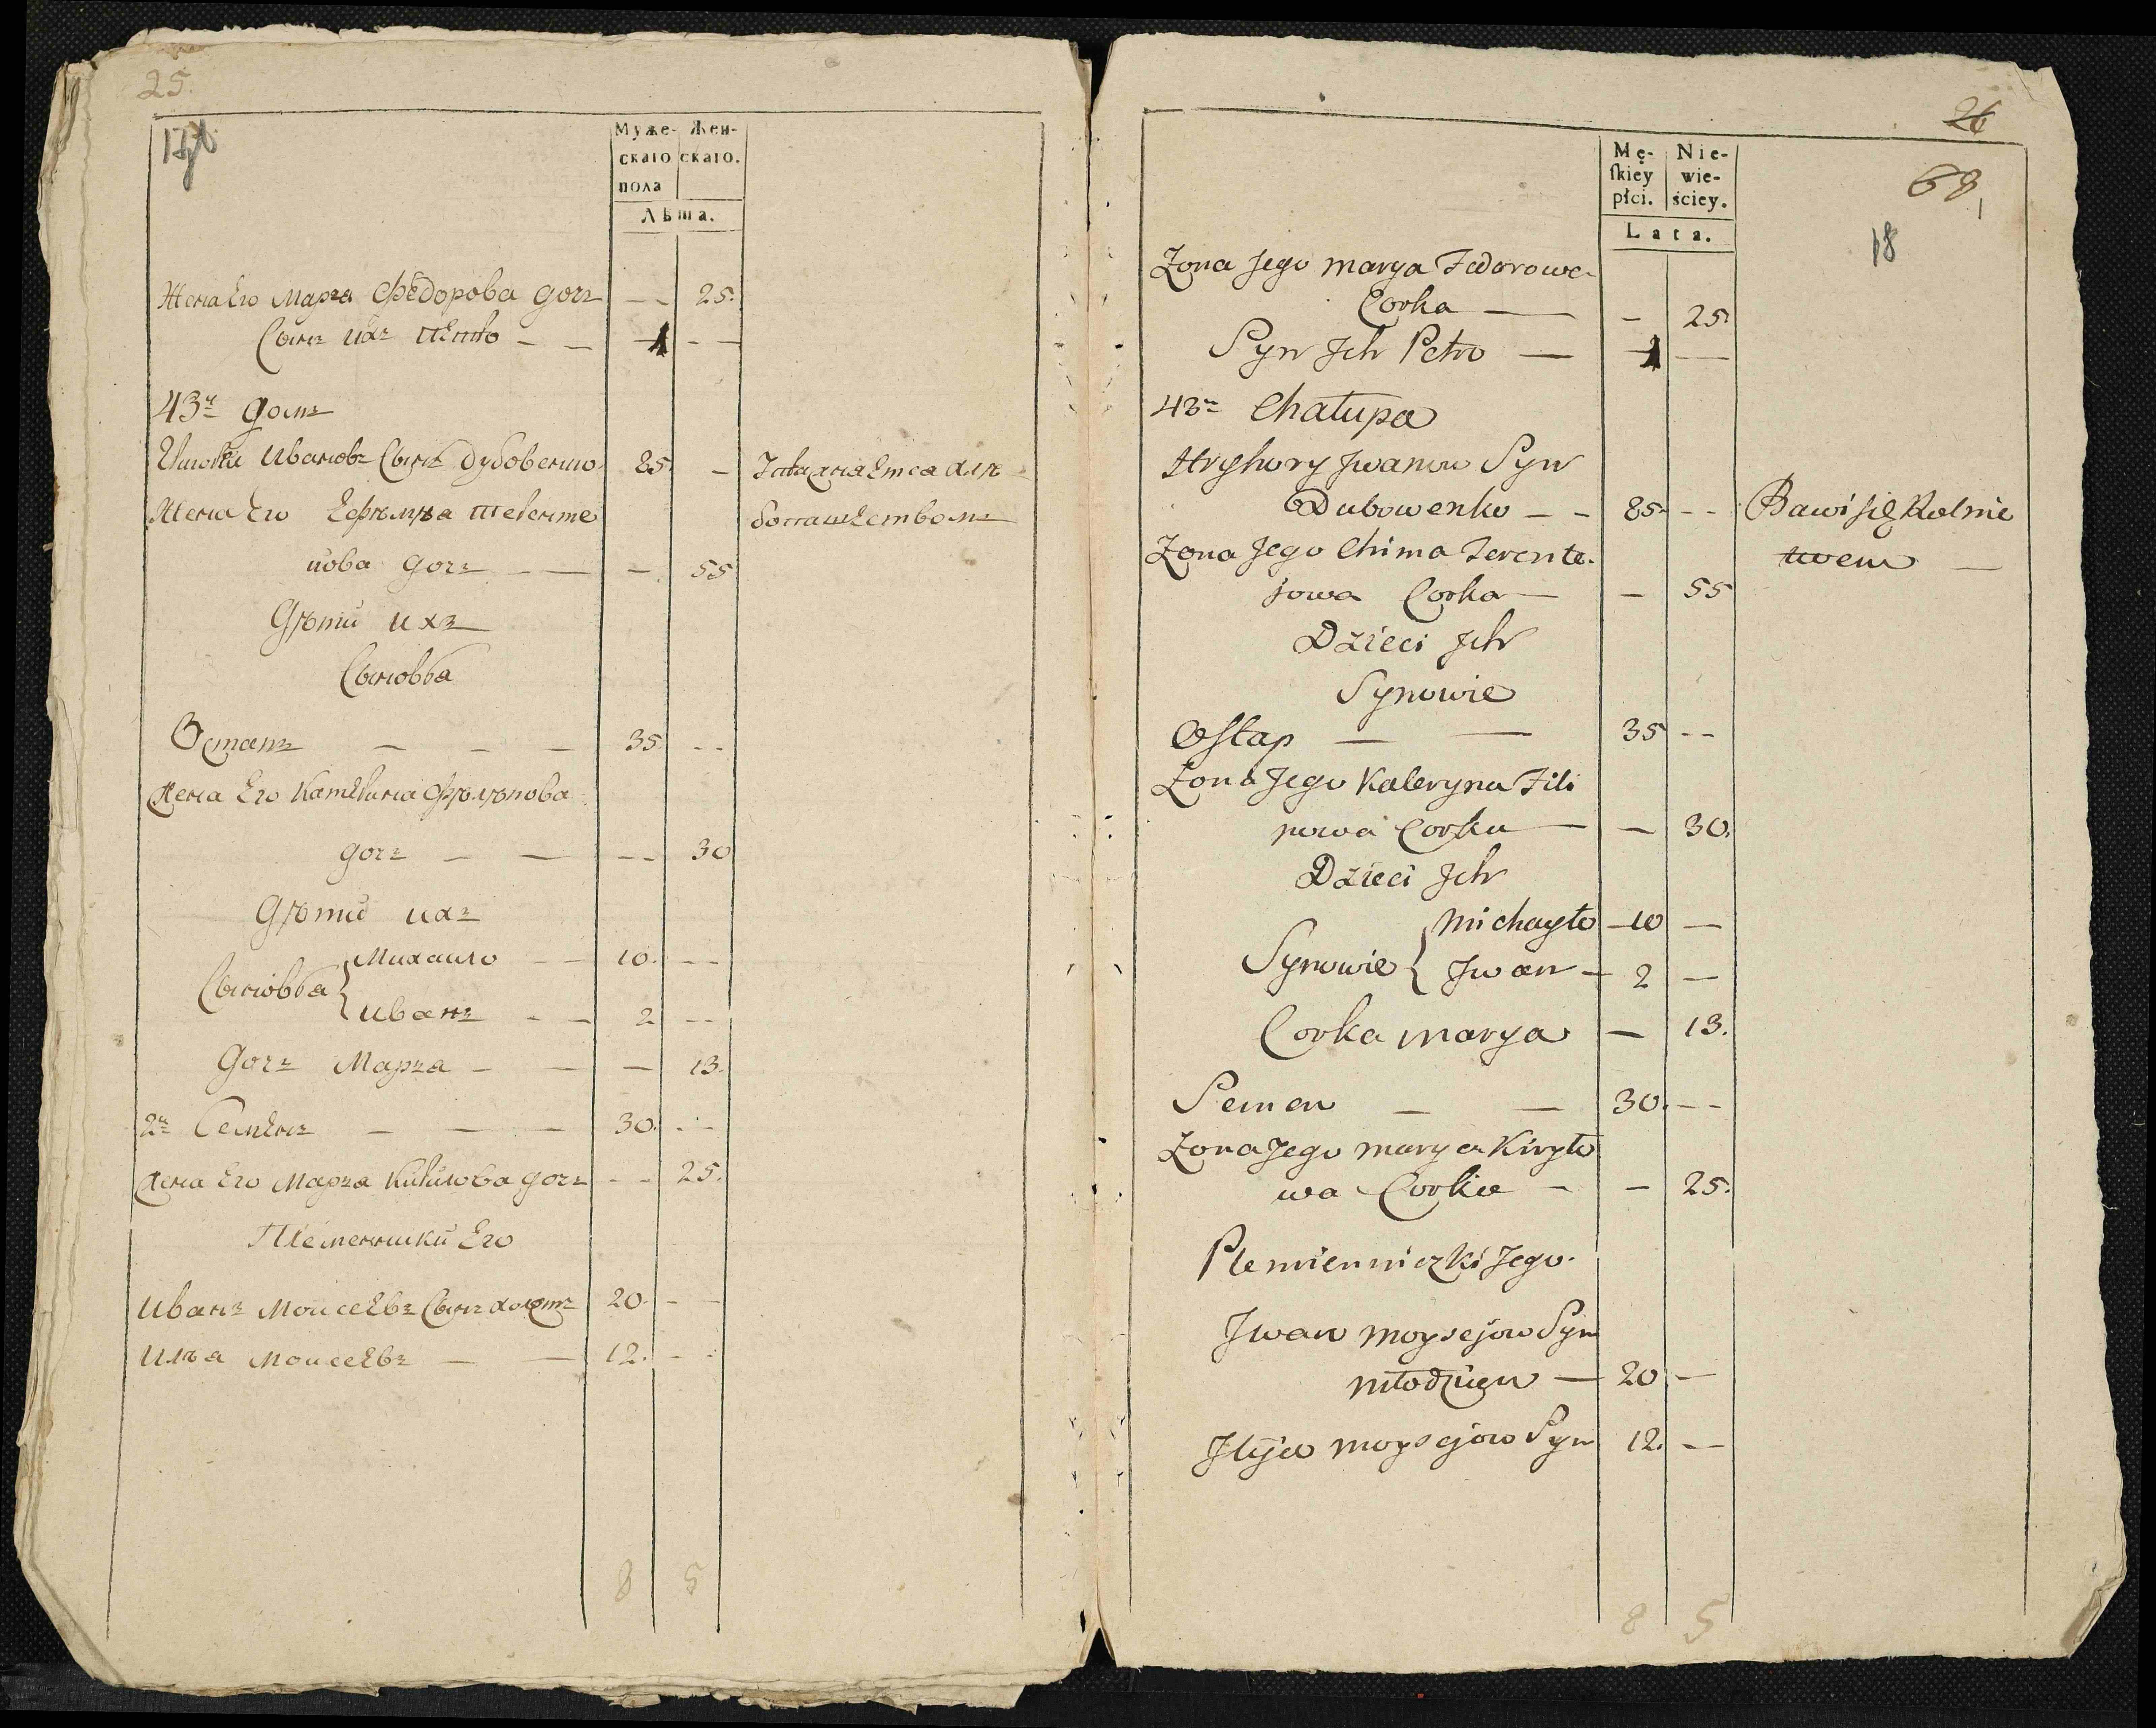 25.
Муже- Жен-
скаго скаго.
пола
Лѣта.
Жена Его Марья Фёдорова дочь — — 25.
Сынъ ихъ Петро — — 1 — —
43й домъ
Ивановъ Сынъ Дубовенко 85. —
Жена Его Терente
ѣова дочь — — — 55
Дѣти ихъ
Сыновья
Остапъ — — — 35 — —
Жена Его Катерина Филипова
дочь — — — — 30
Дѣти ихъ
Сыновья { Михайло — — 10. — —
Иванъ — — 2 — —
Дочь Марья — — — 13.
2й Семенъ — — — 30. — —
Жена Его Марья Кирилова дочь — — 25.
Племенники Его
Иванъ Моисеевъ Сынъ холостъ 20. — —
Илья Моисеевъ — — 12. — —
8 5
26
Mę- Nie-
skiey wie-
płci. ściey.
Lata.
68
18
Zona Jego Marya Fedorowa
Corka — — 25.
Syn Jch Petro — 1 —
43a Chałupa
Hryhory Jwanow Syn
Dubowenko — — 85. — — Bawi się Rolnic
twem —
Zona Jego Chima Terente.
jowa Corka — — 55
Dzieci Jch
Synowie
Ostap — — 35 — —
Zona Jego Kateryna Fili
powa Corka — — 30.
Dzieci Jch
Synowie { Michayło — 10 —
Jwan — 2 —
Corka Marya — 13.
Semen — — 30. — —
Zona Jego Marya Kiryło
wa Corka — — 25.
Plemienniczki Jego.
Jwan Moysejow Syn
młodzien — 20 —
Jlija Moysejow Syn 12. —
8 5